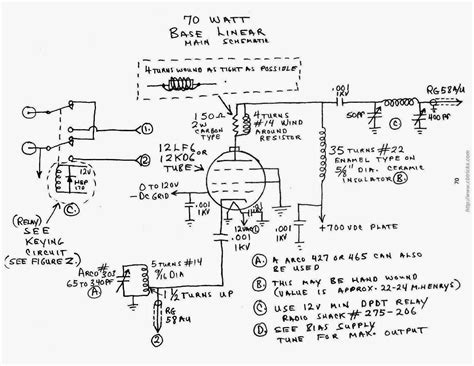 70 WATT
BASE LINEAR
MAIN SCHEMATIC
4 TURNS WOUND AS TIGHT AS POSSIBLE
.001
1KV
RG 58A/U
150Ω
2W
CARBON
TYPE
4 TURNS
#14 WIND
AROUND
RESISTOR
50PF
C
400PF
1
2
12LF6
OR
12KD6
TUBE
35 TURNS #22
ENAMEL TYPE ON
5/8" DIA. CERAMIC
INSULATOR B
12V
C
(RELAY)
SEE
KEYING
CIRCUIT
(SEE FIGURE 2.)
0 TO 120V
-DC GRID
.001
1KV
12VAC
D
.001
1KV
.001
1KV
+700 VDC PLATE
ARCO #303
65 TO 340PF
A
5 TURNS #14
9/16 DIA
1 1/2 TURNS UP
RG
58AU
2
A A ARCO 427 OR 465 CAN ALSO
BE USED
B THIS MAY BE HAND WOUND
(VALUE IS APPROX. 22-24 M.HENRYS)
C USE 12V MIN DPDT RELAY
RADIO SHACK # 275-206
D SEE BIAS SUPPLY
TUNE FOR MAX. OUTPUT
70